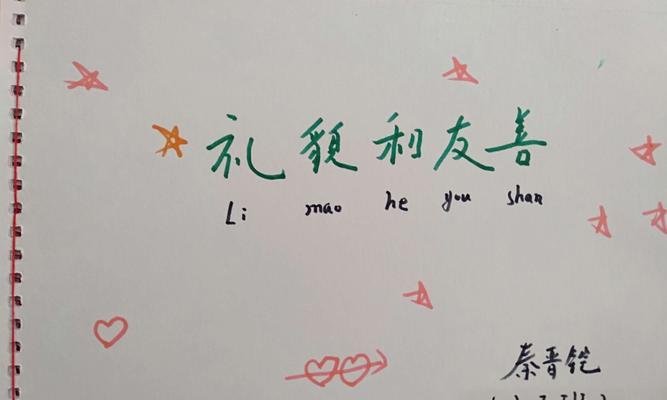 礼貌和友善
Li mao he you shan
秦晋铠